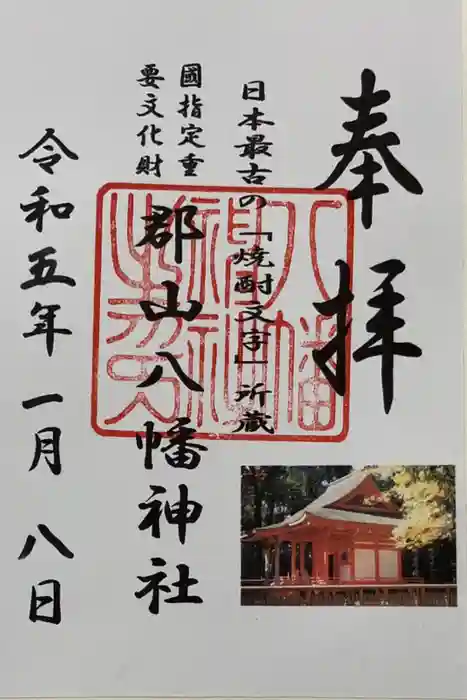 奉拝
日本最古の「焼酎文字」所蔵
國指定重
要文化財
郡山八幡神社
令和五年 一月 八日
八幡神社